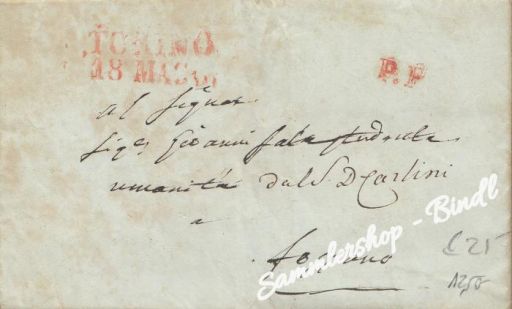 TORINO
18 MAG
P.P
al Signor
Sig. Giovanni Sala studente
umanità dal S. D Carlini
a
Sammlershop - Bindl
£25
1250